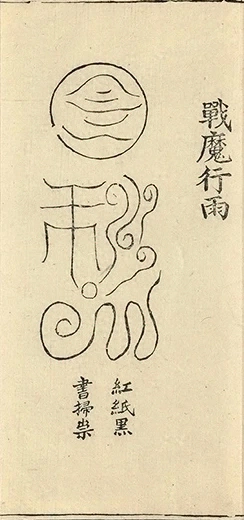 戰魔行雨
紅紙黑
書掃祟